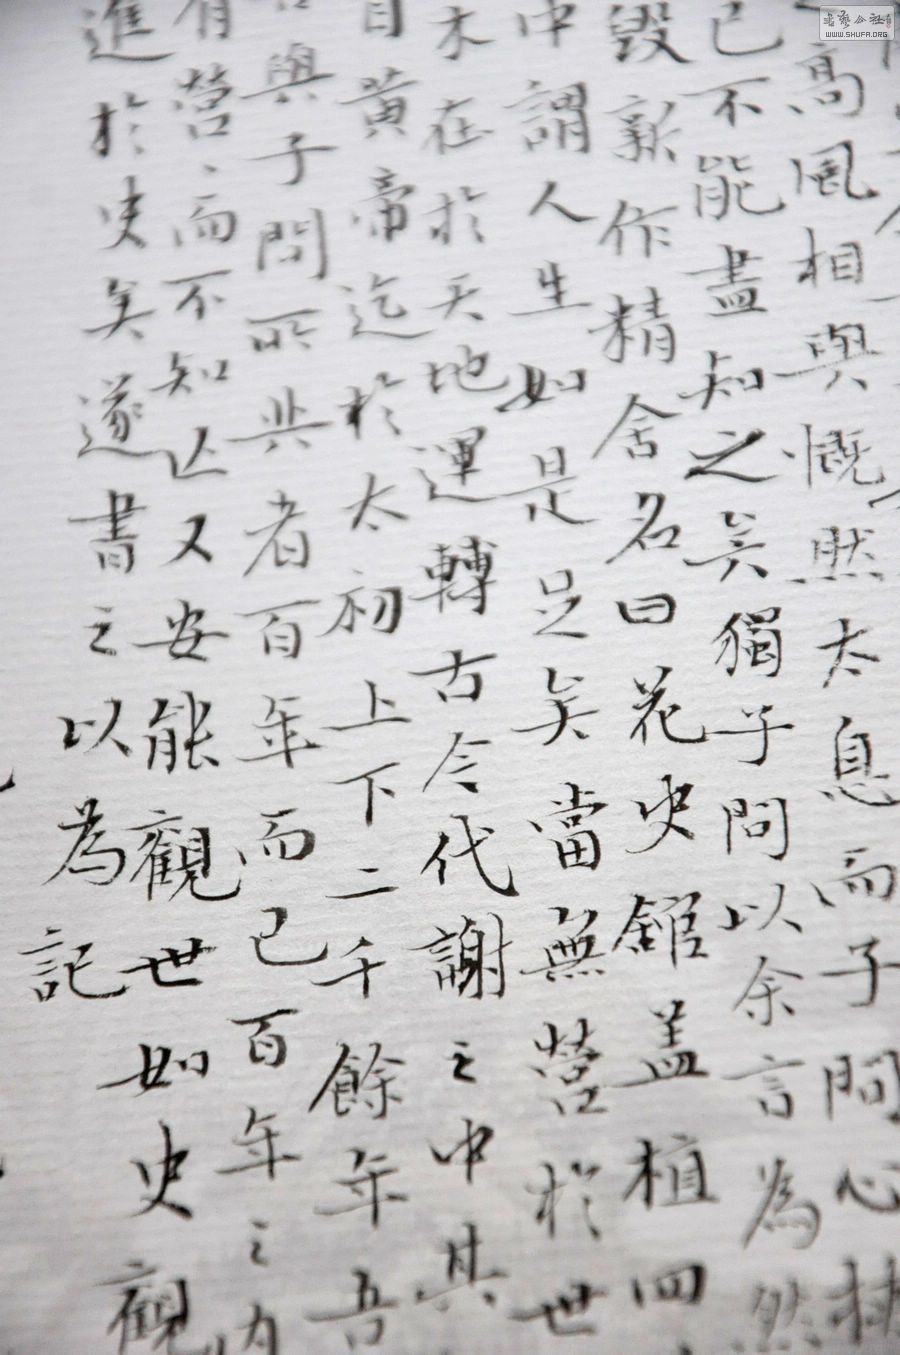 高風相與慨然太息而子問心
已不能盡知之矣獨子問以余言為然
毀新作精舍名曰花史館蓋植四
中謂人生如是足矣當無營於世
木在於天地運轉古今代謝之中其
自黃帝迄於太初上下二千餘年吾
與子問所共者百年而已百年之內
有營營而不知止又安能觀世如史觀
進於史矣遂書之以為記
WWW.SHUFA.ORG